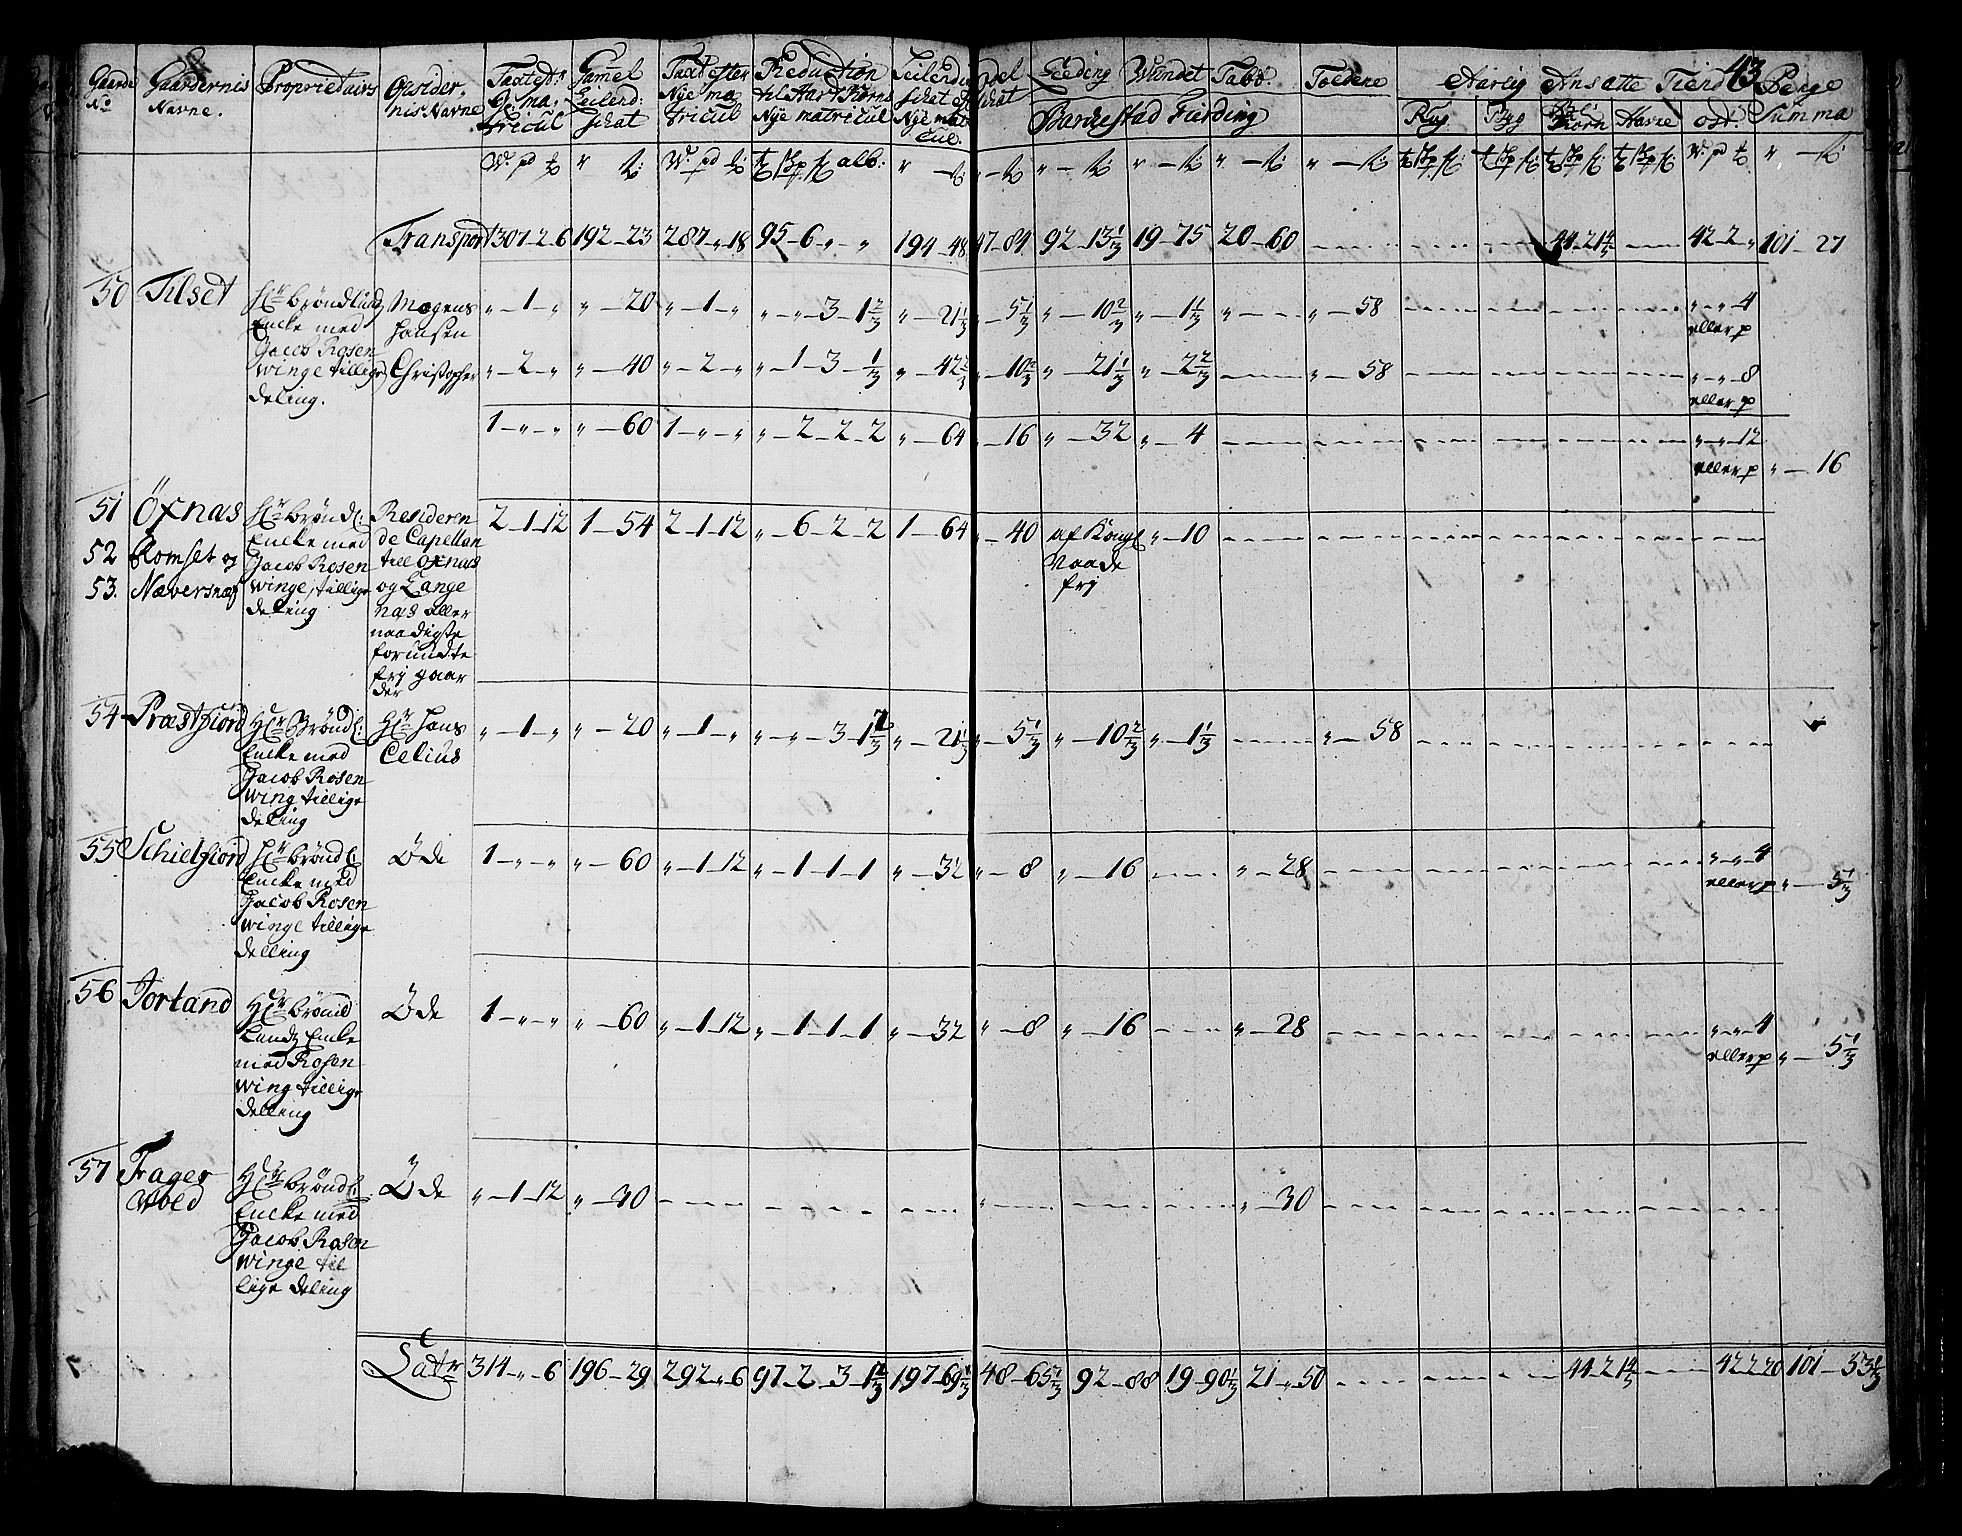 43
Gaarde No Gaardernis Navne. Proprietairs Opsider- nis Navne Taxt eft: Gl: ma- tricul Gamel Leilend: schat Taxt efter Nye ma tricul Reduction til Hart Korn Nye matricul Leilendig schat ef Nye mat cul. Leeding Wiiset Tabo: Toldene Aarlig Ansatte Tiend Penge
Barchestad Fierding Rug Byg Bl: Korn Havre ost. Summa
Transport 307-2-6 192-23 287-"-18 95-6-"-" 194-48 47-84 92-13 1/3 19-75 20-60 44-2 1 4/5 42-2-" 101-27
50 Tilset Hr: Brøndlundz Encke med Jacob Rosen winge tillige deling. Mogens Hansen "-1-" "-20 "-1-" "-"-3-1 2/3 "-21 1/3 "-5 1/3 "-10 2/3 "-1 1/3 "-58 "-"-4 eller p
Christopher "-2-" "-40 "-2-" "-1-3-1/3 "-42 2/3 "-10 2/3 "-21 1/3 "-2 2/3 "-58 "-"-8 eller p
1-"-" "-60 1-"-" "-2-2-2 "-64 "-16 "-32 "-4 "-"-12 eller p "-16
51 Öxnas
52 Romset og
53. Næversnæs
Hr: Brøndl: Encke med Jacob Rosen winge, tillige deling
Residerende Capellan till Öxnas og Lange nas aller naadigste forundte frj gaarder
2-1-12 1-54 2-1-12 "-6-2-2 1-64 "-40 af Kongl Naade frj "-10
54 Præstfiord Hr: Brøndl: Encke med Jacob Rosen wing tillige deling Hr: Hans Celius "-1-" "-20 "-1-" "-"-3-1 2/3 "-21 1/3 "-5 1/3 "-10 2/3 "-1 1/3 "-58
55 Schielfiord Hr: Brøndl: Encke med Jacob Rosen winge tillige delling Öde 1-"-" "-60 "-1-12 "-1-1-1 "-32 "-8 "-16 "-28 "-"-4 eller p "-5 1/3
56 Torland Hr: Brønd Lundz Encke med Rosen wing tillige delling Öde 1-"-" "-60 "-1-12 "-1-1-1 "-32 "-8 "-16 "-28 "-"-4 eller p "-5 1/3
57 Frager Wold Hr: Brøndl: Encke med Jacob Rosen winge til lige deling Öde "-1-12 "-30 "-30
Latr 314-"-6 196-29 292-"-6 97-2-3-1 2/3 197-69 1/3 48-65 1/3 92-88 19-90 1/3 21-50 44-2 1 4/5 42-2-20 101-53